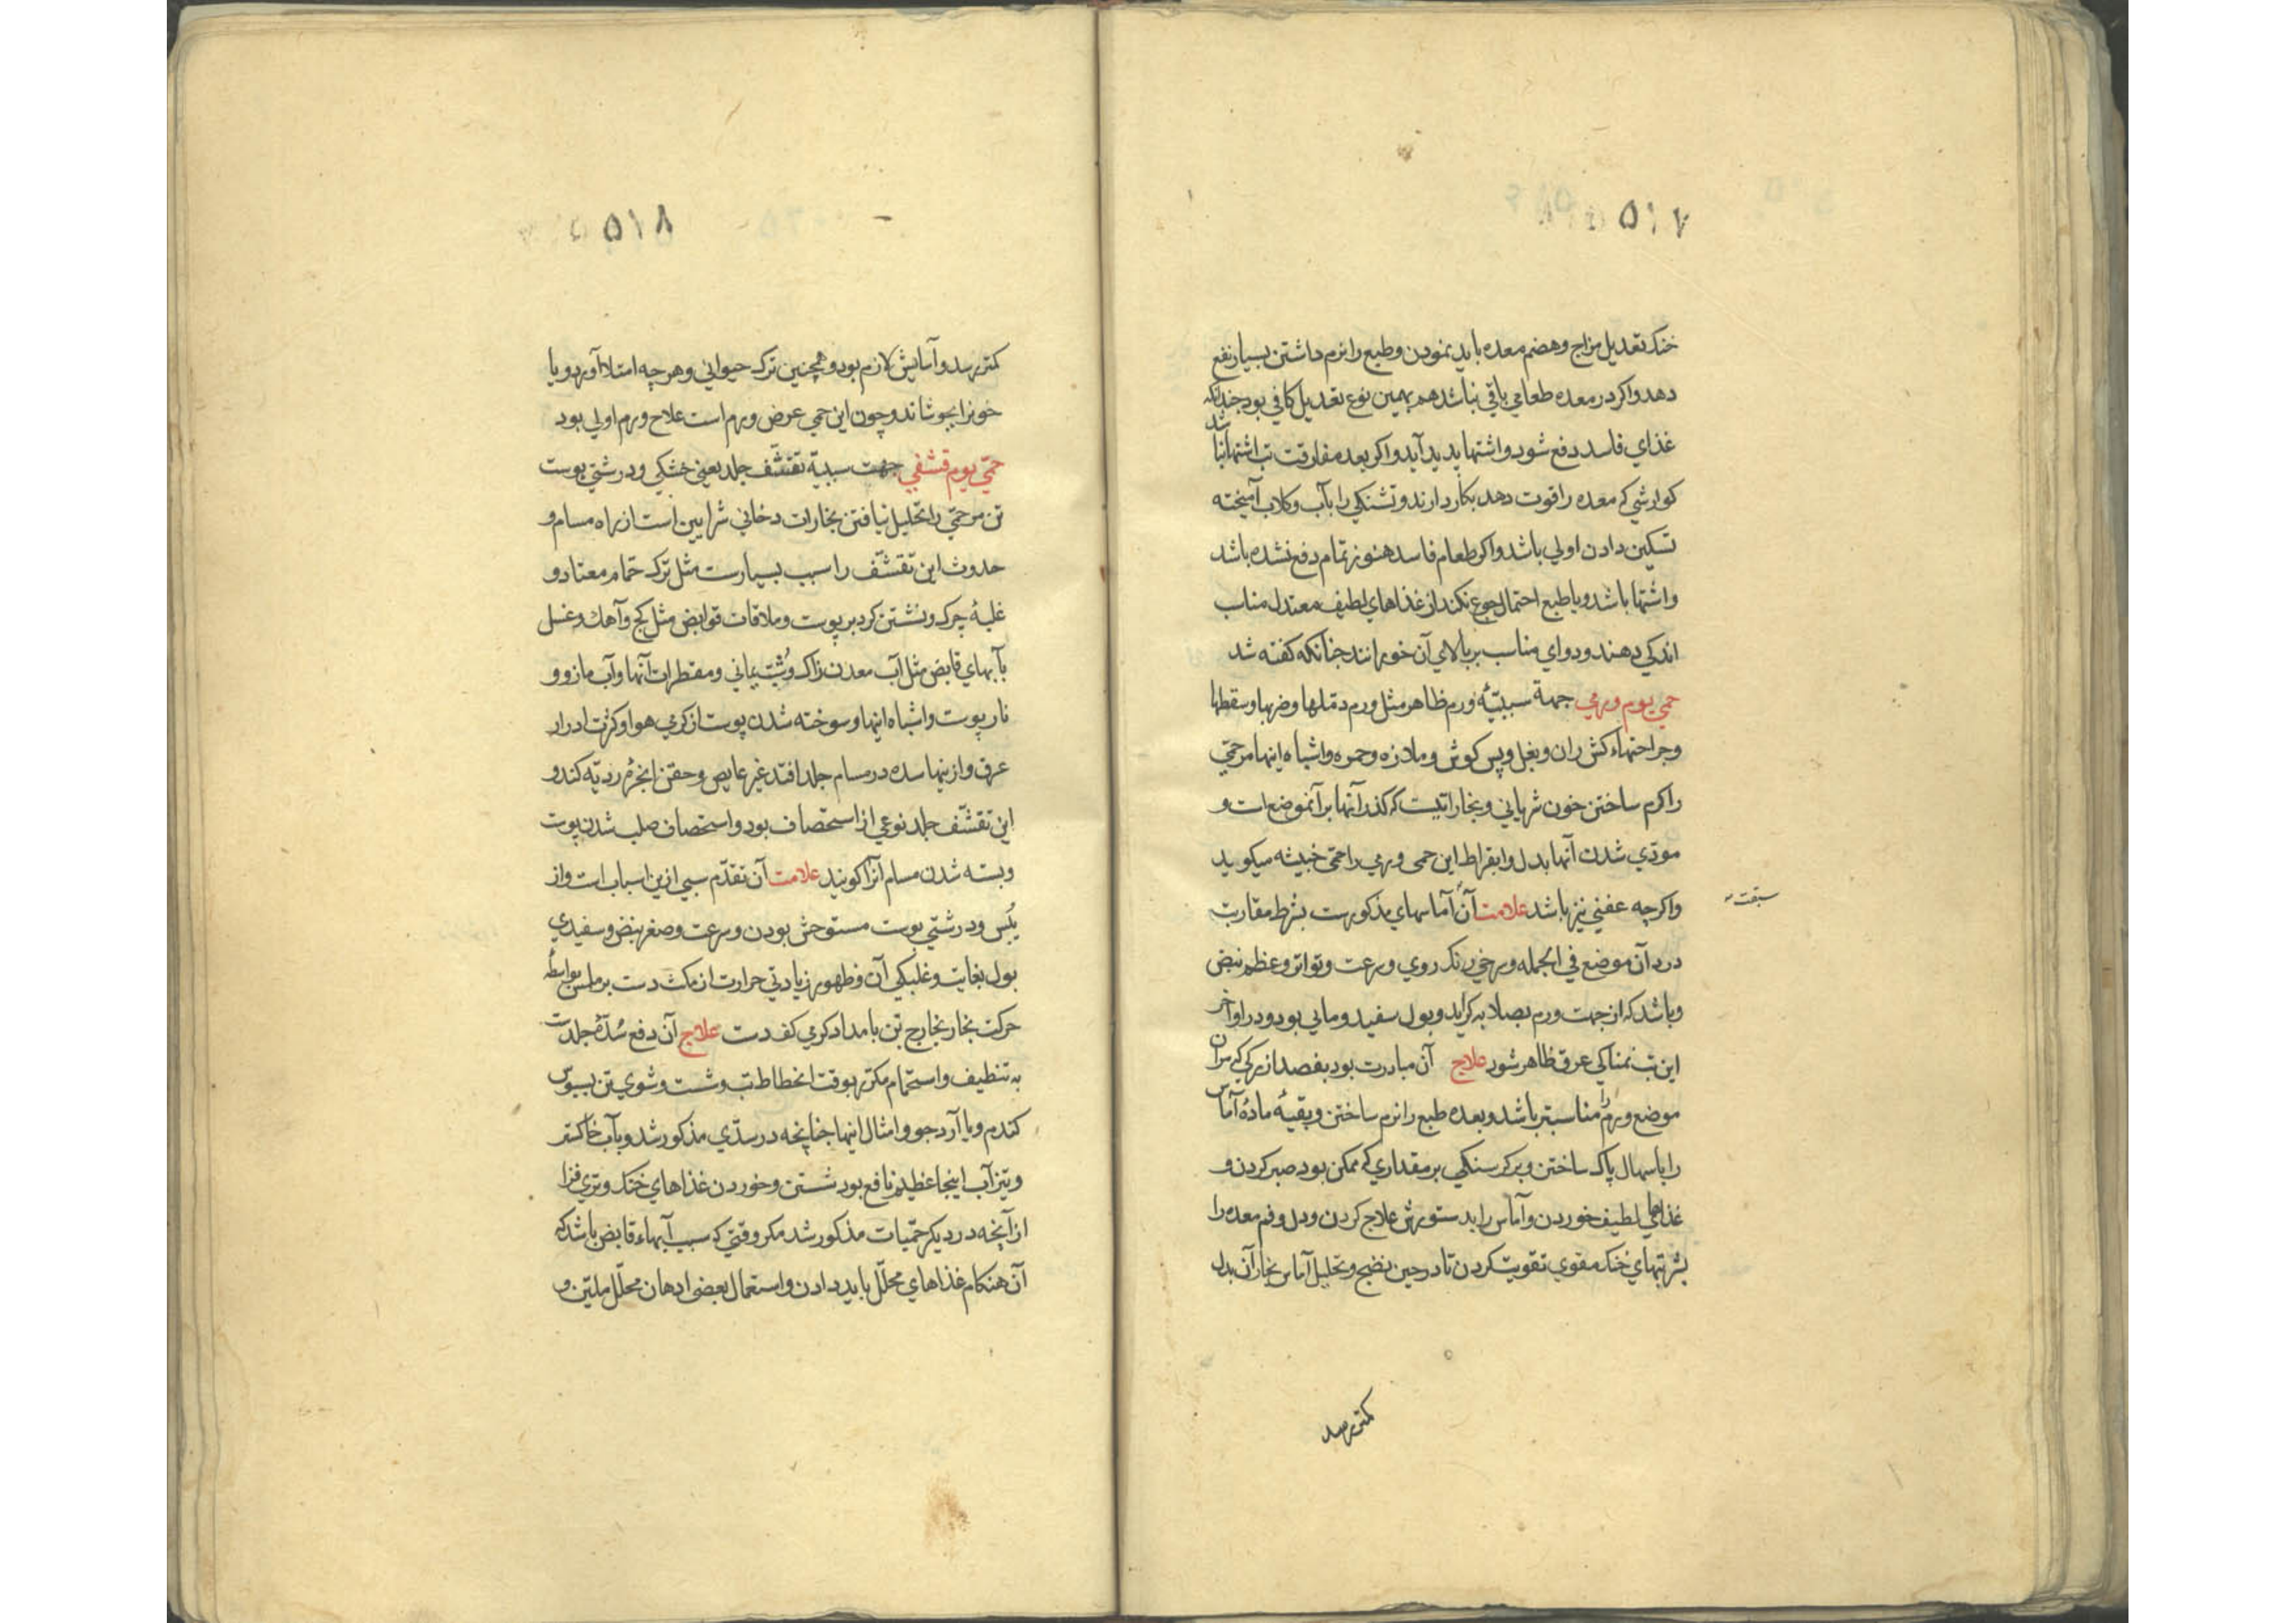 ۵۱۷
خنک تعدیل مزاج و هضم معده باید نمودن و طبع را نرم داشتن بسیار نفع
دهد و اکر در معده طعامی باقی نباشد هم بهمین نوع تعدیل کافی بود چندانکه
غذای فاسد دفع شود و اشتها پدید آید و اکر بعد مفارقت تب اشتها نباشد
کوارشی که معده را قوت دهد بکار دارند و تشنکی را بآب و کلاب آمیخته
تسکین دادن اولی باشد و اکر طعام فاسد هنوز تمام دفع نشده باشد
و اشتها باشد و یا طبع احتمال جوع نکند از غذاهای لطیف معتدل مناسب
اندکی دهند و دوای مناسب بر بالای آن خورانند چنانکه کفته شد
حمی یوم ورمی جهة سببیّه ورم ظاهر مثل ورم دملها و ضربها و سقطها
و جراحتهاء کش ران و بغل و پس کوش و ملازه و حمره و اشباه اینها مر حمّی
را کرم ساختن خون شریانی و بخاراتیست که کذر آنها بر آنموضع است و
مودّی شدن آنها بدل و ابقراط این حمی ورمی را حمّی خبیثه میکوید
واکرچه عفنی نیز باشد علامت آن آماسهای مذکورست بشرط مقاربت
سبقت
درد آن موضع فی الجمله و سرخی رنک روی و سرعت و تواتر و عظم نبض
و باشد که از جهت ورم بصلابه کراید و بول سفید و مائی بود و در اواخر
این تب نمناکی عرق ظاهر شود علاج آن مبادرت بود بفصد از رکی که مر آن
موضع ورم را مناسبتر باشد و بعده طبع را نرم ساختن و بقیهٔ مادهٔ آماس
را باسهال پاک ساختن و بر کرسنکی بر مقداری که ممکن بود صبر کردن و
غذاهای لطیف خوردن و آماس را بدستورش علاج کردن و دل و فم معده را
بشربتهای خنک مقوی تقویت کردن تا در حین نضج و تحلیل آماس بخار آن بدل
کمتر رسد
۵۱۸
کمتر رسد و آسایش لازم بود و همچنین ترک حیوانی و هرچه امتلا آورد و یا
خونرا بجوشاند و چون این حمی عرض ورم است علاج ورم اولی بود
حمّی یوم قشفی جهت سببیّة تقشّف جلد یعنی خشکی و درشتی پوست
تن مر حمّی را تحلیل نیافتن بخارات دخانی شرایین است از راه مسام و
حدوث این تقشّف را سبب بسیارست مثل ترک حمّام معتاد و
غلبهٔ چرک و نشستن کرد بر پوست و ملاقات قوابض مثل کچ و آهک و غسل
بآبهای قابض مثل آب معدن زاک و شُبّ یمانی و مقطرات آنها و آب مازو و
نار پوست و اشباه اینها و سوخته شدن پوست از کرمی هوا و کثرت ادرار
عرق و ازینها سده در مسام جلد افتد غیر غایص و حقن ابخرهٔ ردیّه کند و
این تقشّف جلد نوعی از استحصاف بود و استحصاف صلب شدن پوست
و بسته شدن مسام آنرا کویند علامت آن تقدّم سببی ازین اسباب است و از
یُبس و درشتی پوست مستوحش بودن و سرعت و صغر نبض و سفیدی
بول بغایت و غلیکی آن و ظهور زیادتی حرارت از مکث دست بر ملمس بواسطهٔ
حرکت بخار بخارج تن بامداد کرمی کف دست علاج آن دفع سُدّهٔ جلدست
به تنظیف و استحمام مکرّر بوقت انحطاط تب و شست و شوی تن بسبوس
کندم و یا آرد جو و امثال اینها چنانچه در سدّی مذکور شد و بآب خاکستر
و تیز آب اینجا عظیم نافع بود شستن و خوردن غذاهای خنک و تری فزا
از آنچه در دیکر حمّیات مذکور شد مکر وقتی که سبب آبهاء قابض باشد که
آن هنکام غذاهای محلّل باید دادن و استعمال بعضی ادهان محلّل ملیّن و